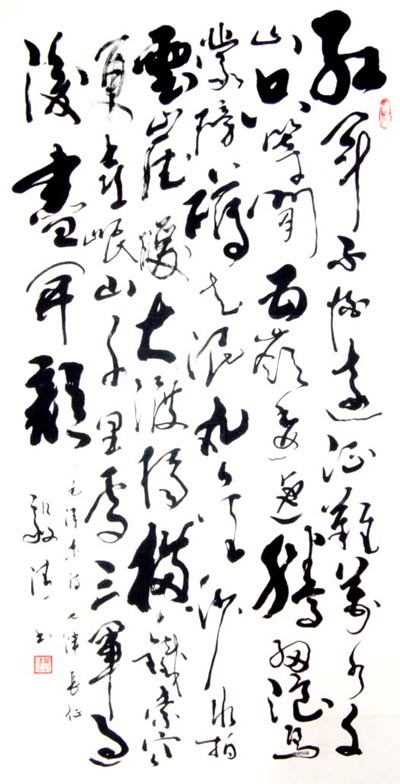 紅軍不怕遠征難萬水千
山只等閒五嶺逶迤騰細浪烏
蒙磅礴走泥丸金沙水拍
雲崖暖大渡橋橫鐵索寒
更喜岷山千里雪三軍過
後盡開顏
毛澤東詩七律長征
书